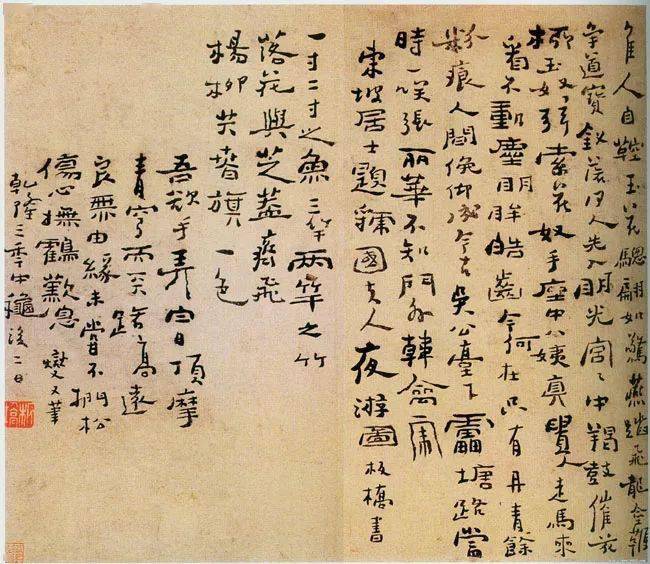 佳人自鞚玉花驄翩如驚燕踏飛龍金鞭
爭道寶釵落何人先入明光宮〻中羯鼓催花
柳玉奴弦索花奴手座中八姨真貴人走馬來
看不動塵明眸皓齒今何在只有丹青餘
粉痕人間俛仰成今古吳公臺下雷塘路當
時一咲張麗華不知門外韓禽虎
東坡居士題虢國夫人夜游圖 板橋書
一寸二寸之魚三竿兩竿之竹
落花與芝蓋齊飛
楊柳共春旗一色
吾欲手弄白日頂摩
青穹而天路高遠
良無由緣未嘗不捫松
傷心撫鶴歎息 燮又筆
乾隆三年中龝後二日